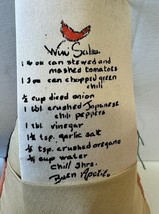 Wini Salsa
1 8 oz can stewed and
mashed tomatoes
1 3 oz can chopped green
chili
½ cup diced onion
1 tbl crushed Japanese
chili peppers
1 tbl vinegar
½ tsp. garlic salt
½ tsp. crushed oregano
½ cup water
Chill 3hrs.
Buen